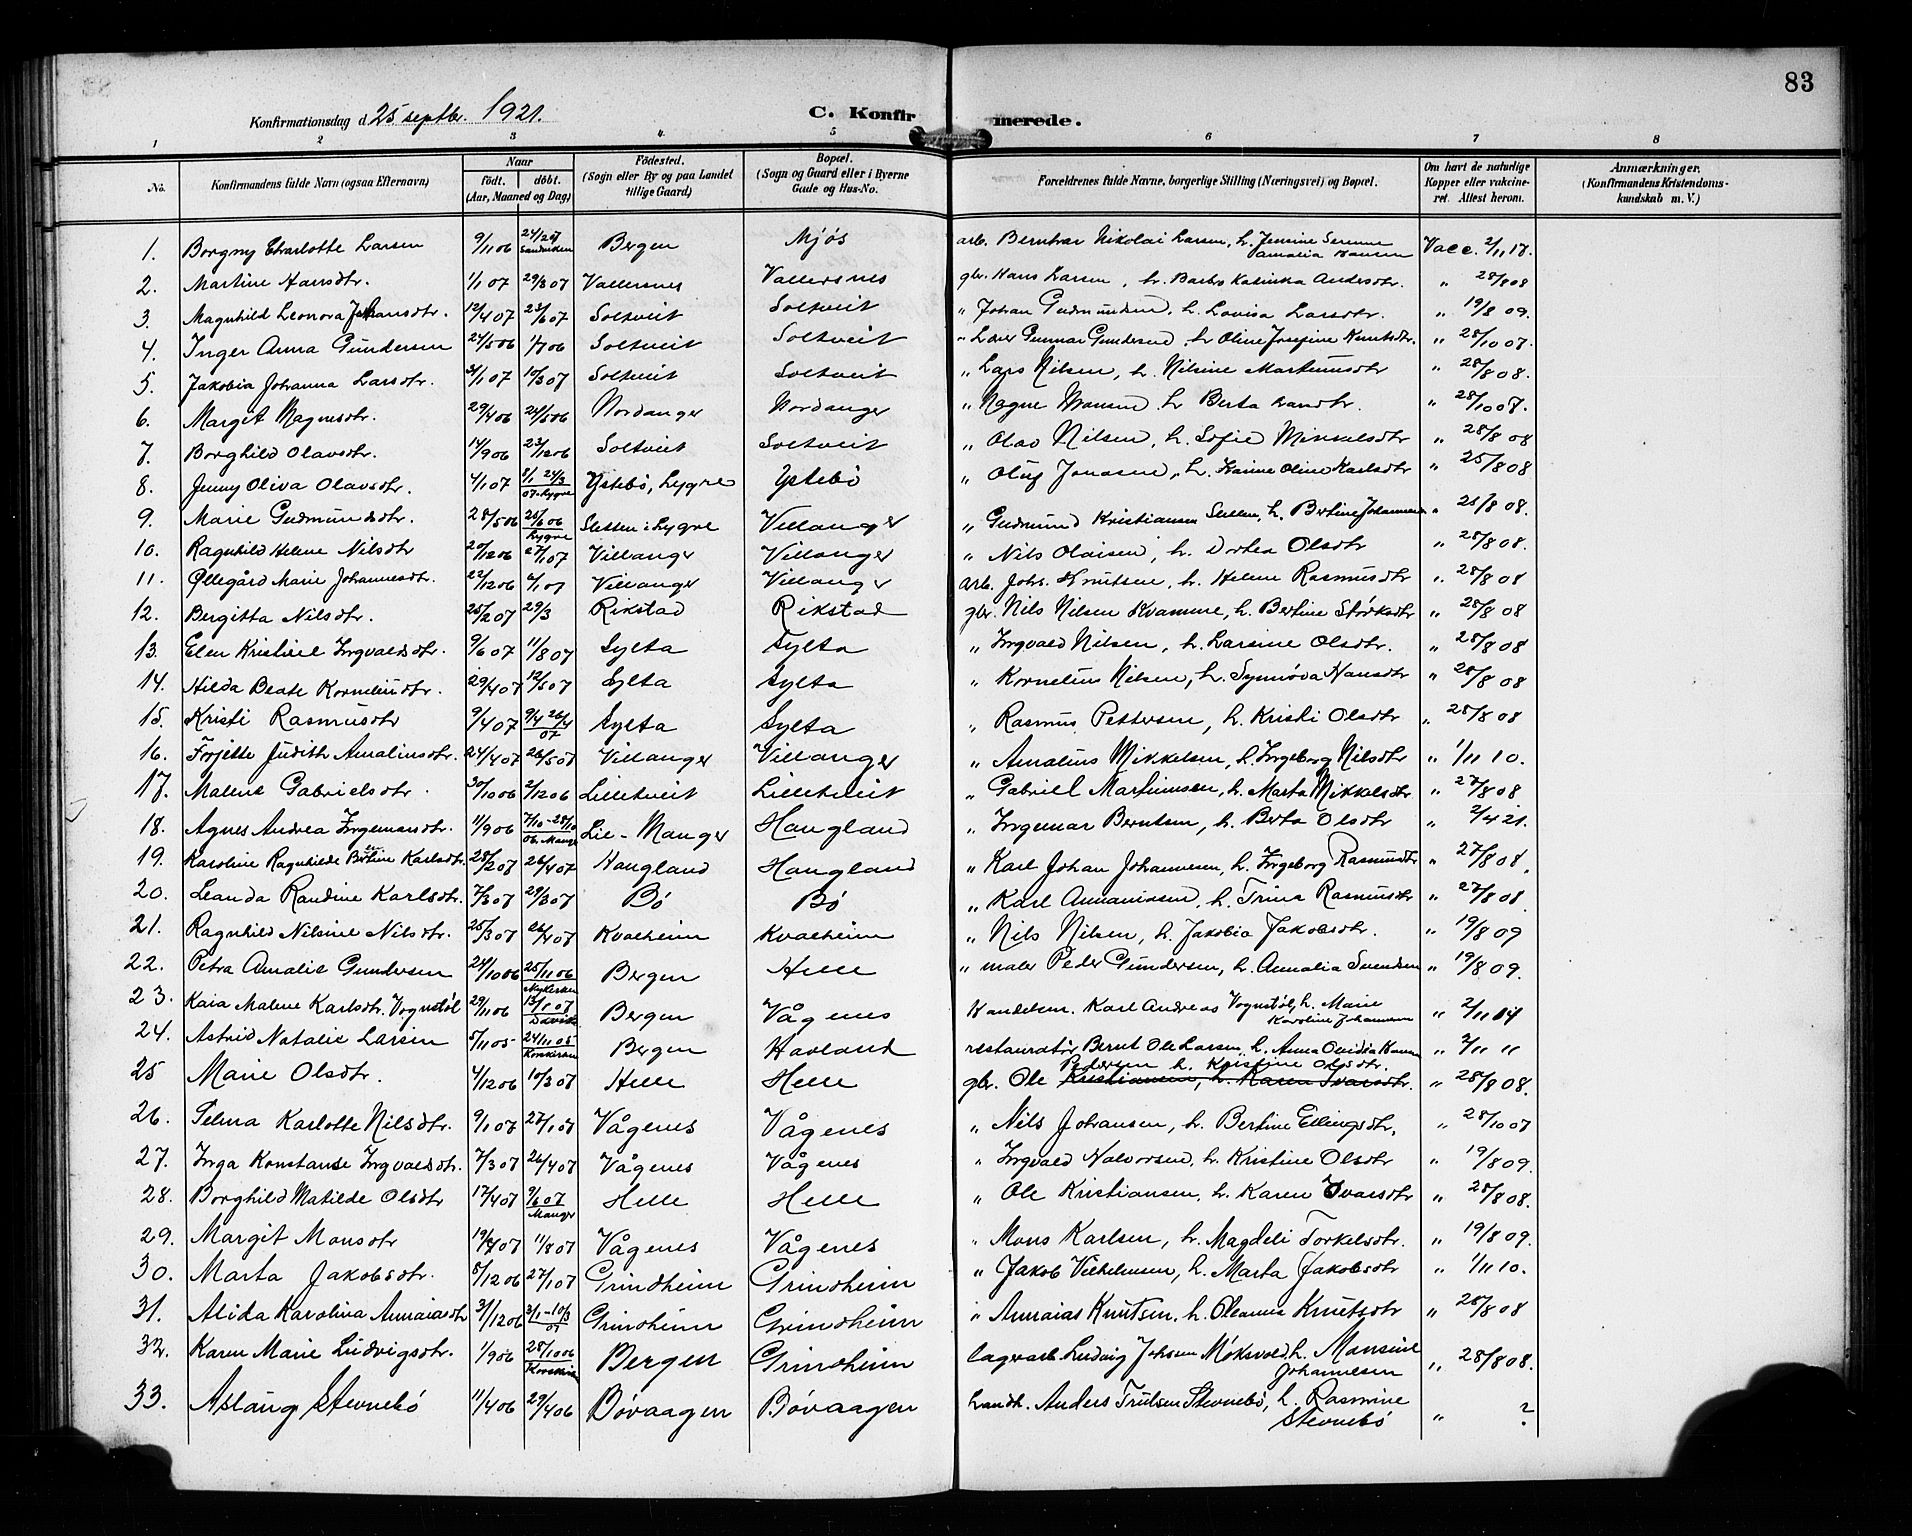 83
Konfirmationsdag d. 25 septbr. 1921.
C. Konfirmerede.
1 2 3 4 5 6 7 8
No. Konfirmandens fulde Navn (ogsaa Efternavn) Naar født. døbt. (Aar, Maaned og Dag) Fødested. (Sogn eller By og paa Landet tillige Gaard) Bopæl. (Sogn og Gaard eller i Byerne Gade og Hus-No. Forældrenes fulde Navne, borgerlige Stilling (Næringsvei) og Bopæl. Om havt de naturlige Kopper eller vakcineret. Attest herom. Anmærkninger. (Konfirmandens Kristendomskundskab m. V.)
1. Borgny Charlotte Larsen 9/11 06 Bergen Mjøs arb. Berntvar Nikolai Larsen, h. Jensine Serine Amalia Hansen Vacc. 2/11 17.
2. Martine Hansdtr. 1/1 07 29/3 07 Vallersnes Vallersnes gbr. Hans Larsen, h. Barbro Katinka Andersdtr. " 28/8 08
3. Magnhild Leonora Johansdtr. 12/4 07 23/6 07 Soltveit Soltveit " Johan Gudmundsen, h. Lovisa Larsdtr. " 19/8 09.
4. Inger Anna Gundersen 24/5 06 1/7 06 Soltveit Soltveit " Lærer Gunnar Gundersen, h. Oline Josefine Knutsdtr. " 28/10 07.
5. Jakobia Johanna Larsdtr. 31/1 07 10/3 07 Soltveit Soltveit " Lars Nilsen, h. Nilsine Martinusdtr " 28/8 08.
6. Margit Magnusdtr. 29/4 06 24/5 06 Nordanger Nordanger " Magne Monsen h. Berta Larsdtr. " 28/10 07.
7. Borghild Olavsdtr. 14/9 06 23/12 06 Soltveit Soltveit " Olav Nilsen, h. Sofie Mikkelsdtr " 28/8 08
8. Jenny Oliva Olavsdtr. 4/1 07 8/1 24/3 07. Lygre Ystebø, Lygre Ystebø " Oluf Jonasen, h. Karine Oline Karlsdtr " 25/8 08
9. Marie Gudmundsdtr. 28/5 06 25/6 06 Lygre Sletten i Lygre Villanger " Gudmund Kristiansen Sletten, h. Bertine Johannesen " 28/8 08.
10. Ragnhild Helene Nilsdtr 20/12 06 27/1 07 Villanger Villanger " Nils Olaisen, h. Dortea Olsdtr " 28/8 08.
11. Ollegård Marie Johannesdtr. 22/12 06 6/1 07 Villanger Villanger arb. Johs. Knutsen, h. Helene Rasmusdtr " 28/8 08
12. Bergitta Nilsdtr. 25/2 07 29/3 Rikstad Rikstad gbr. Nils Nilsen Kvamme, h. Bertine Størksdtr " 28/8 08
13. Elen Kristine Ingvaldsdtr. 9/6 07 11/8 07 Sylta Sylta " Ingvald Nilsen, h. Larsine Olsdtr. " 28/8 08
14. Hilda Beate Korneliusdtr. 29/4 07 12/5 07 Sylta Sylta " Kornelius Nilsen, h. Synnøva Hansdtr " 28/8 08
15. Kristi Rasmusdtr 9/4 07 9/4 26/4 07 Sylta Sylta " Rasmus Pettersen, h. Kristi Olsdtr " 28/8 08
16. Frøjette Judith Amaliusdtr. 24/4 07 26/5 07 Villanger Villanger " Amalius Mikkelsen, h. Ingeborg Nilsdtr " 1/11 10.
17. Malene Gabrielsdtr. 30/10 06 2/12 06 Lilletveit Lilletveit " Gabriel Martinusen, h. Marta Mikkelsdtr " 27/8 08
18. Agnes Andrea Ingemarsdtr. 11/9 06 7/10-28/10 06. Manger Lie-Manger Haugland " Ingemar Berntsen, h. Berta Olsdtr " 2/4 21.
19. Karoline Ragnhilde Bertine Karlsdtr. 28/2 07 26/4 07 Haugland Haugland " Karl Johan Johannesen, h. Ingeborg Rasmusdtr " 27/8 08.
20. Leanda Randine Karlsdtr. 7/3 07 29/3 07 Bø Bø " Karl Annaniasen, h. Trina Rasmusdtr " 27/8 08.
21. Ragnhild Nilsine Nilsdtr. 25/3 07 26/4 07 Kvalheim Kvalheim " Nils Nilsen, h. Jakobia Jakobsdtr. " 19/8 09
22. Petra Amalie Gundersen 24/10 06 25/11 06 Nykirken Bergen Helle " maler Peder Gundersen, h. Annalia Svendsen " 19/8 09.
23. Kaia Malene Karlsdtr. Vognstøl 29/11 06 13/1 07 Bergen Vågenes Handelsm. Karl Andreas Vognstøl, h. Marie Karoline Johannesen " 2/11 14
24. Astrid Natalie Larsen 5/11 05 24/11 05 Korskirken Bergen Havland restauratør Bernt Ole Larsen, h. Anna Ovidia Hansen " 2/11 11
25 Marie Olsdtr. 4/12 06 10/3 07 Helle Helle gbr. Ole Kristiansen, h. Karen Ivarsdtr. Pedersen h. Kristine Olsdtr. " 28/8 08.
26. Selma Karlotte Nilsdtr. 9/1 07 27/1 07 Vågenes Vågenes " Nils Johansen, h. Bertine Ellingsdtr. " 28/10 07
27. Inga Konstanse Ingvaldsdtr. 7/3 07 26/4 07 Vågenes Vågenes " Ingvald Halvorsen, h. Kristine Olsdtr " 19/8 09.
28. Borghild Matilde Olsdtr 17/4 07 9/6 07 Manger Helle Helle " Ole Kristiansen, h. Karen Ivarsdtr " 28/8 08.
29. Margit Monsdtr 19/4 07 11/8 07 Vågenes Vågenes " Mons Karlsen, h. Magdeli Torkelsdtr. " 19/8 09.
30. Marta Jakobsdtr. 5/12 06 27/1 07 Grindheim Grindheim " Jakob Vilhelmsen, h. Marta Jakobsdtr " 1/11 10.
31. Alida Karolina Annaiasdtr 31/12 06 3/1-10/3 07 Grindheim Grindheim " Annaias Knutsen, h. Oleanna Knutsdtr " 28/8 08
32. Karen Marie Ludvigsdtr. 1/9 06 28/10 06 Korskirken Bergen Grindheim lagerarb. Ludvig Johsen Moksvold, h. Monsine Johannesen " 28/8 08.
33. Aslaug Stevnebø 11/4 06 29/4 06 Bøvaagen Bøvaagen Landh. Anders Trulsen Stevnebø, h. Rasmine Stevnebø " ?